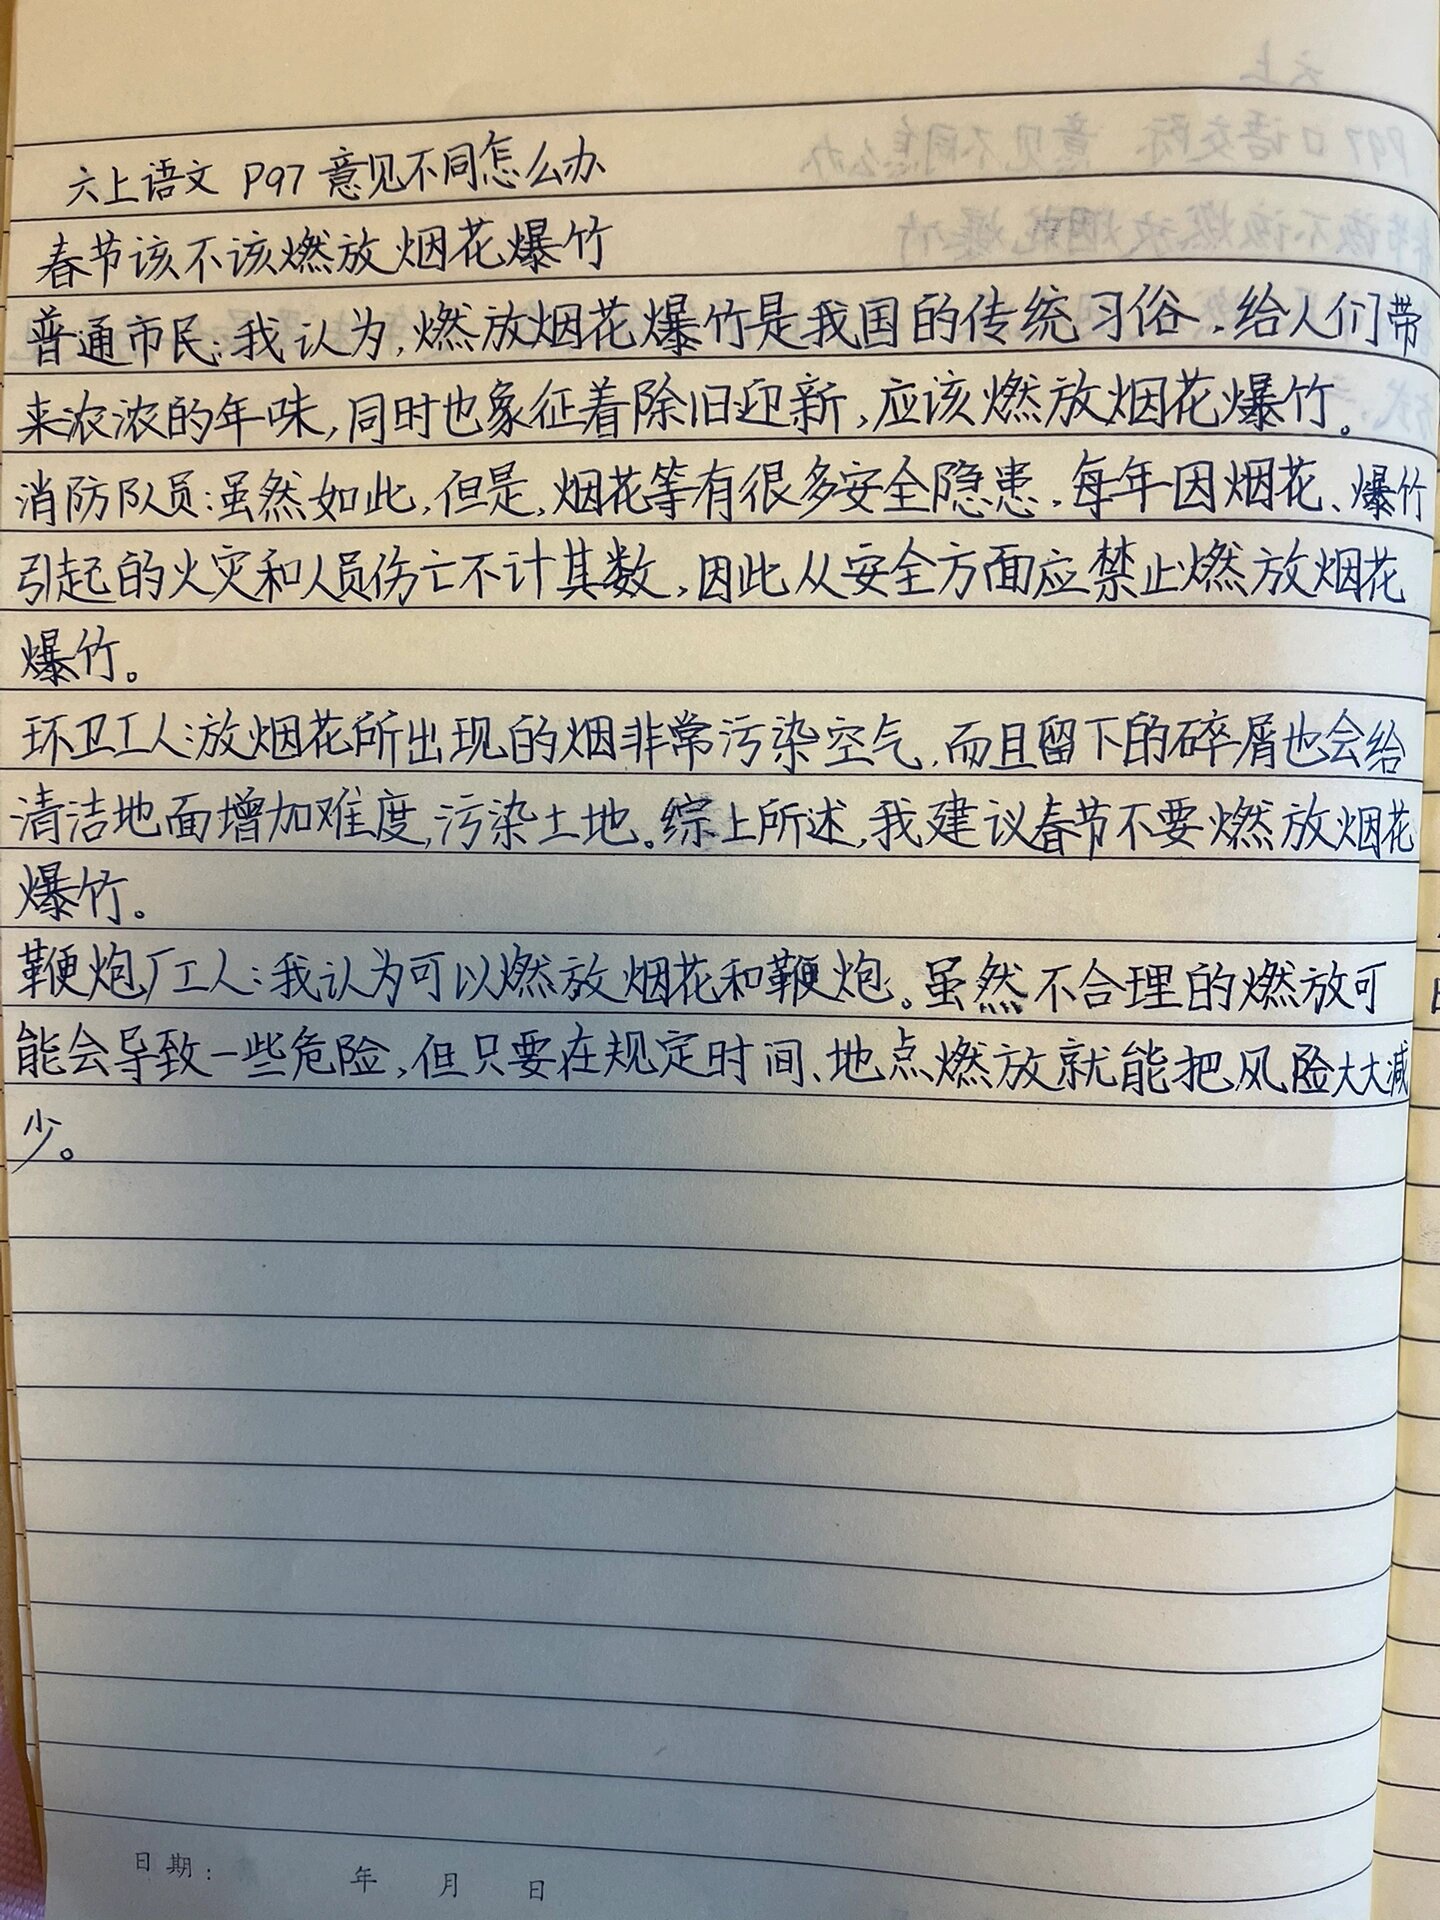 六上语文 P97 意见不同怎么办
春节该不该燃放烟花爆竹
普通市民:我认为,燃放烟花爆竹是我国的传统习俗,给人们带
来浓浓的年味,同时也象征着除旧迎新,应该燃放烟花爆竹。
消防队员:虽然如此,但是,烟花等有很多安全隐患,每年因烟花、爆竹
引起的火灾和人员伤亡不计其数,因此从安全方面应禁止燃放烟花
爆竹。
环卫工人:放烟花所出现的烟非常污染空气,而且留下的碎屑也会给
清洁地面增加难度,污染土地。综上所述,我建议春节不要燃放烟花
爆竹。
鞭炮厂工人:我认为可以燃放烟花和鞭炮。虽然不合理的燃放可
能会导致一些危险,但只要在规定时间、地点燃放就能把风险大大减
少。
日期: 年 月 日